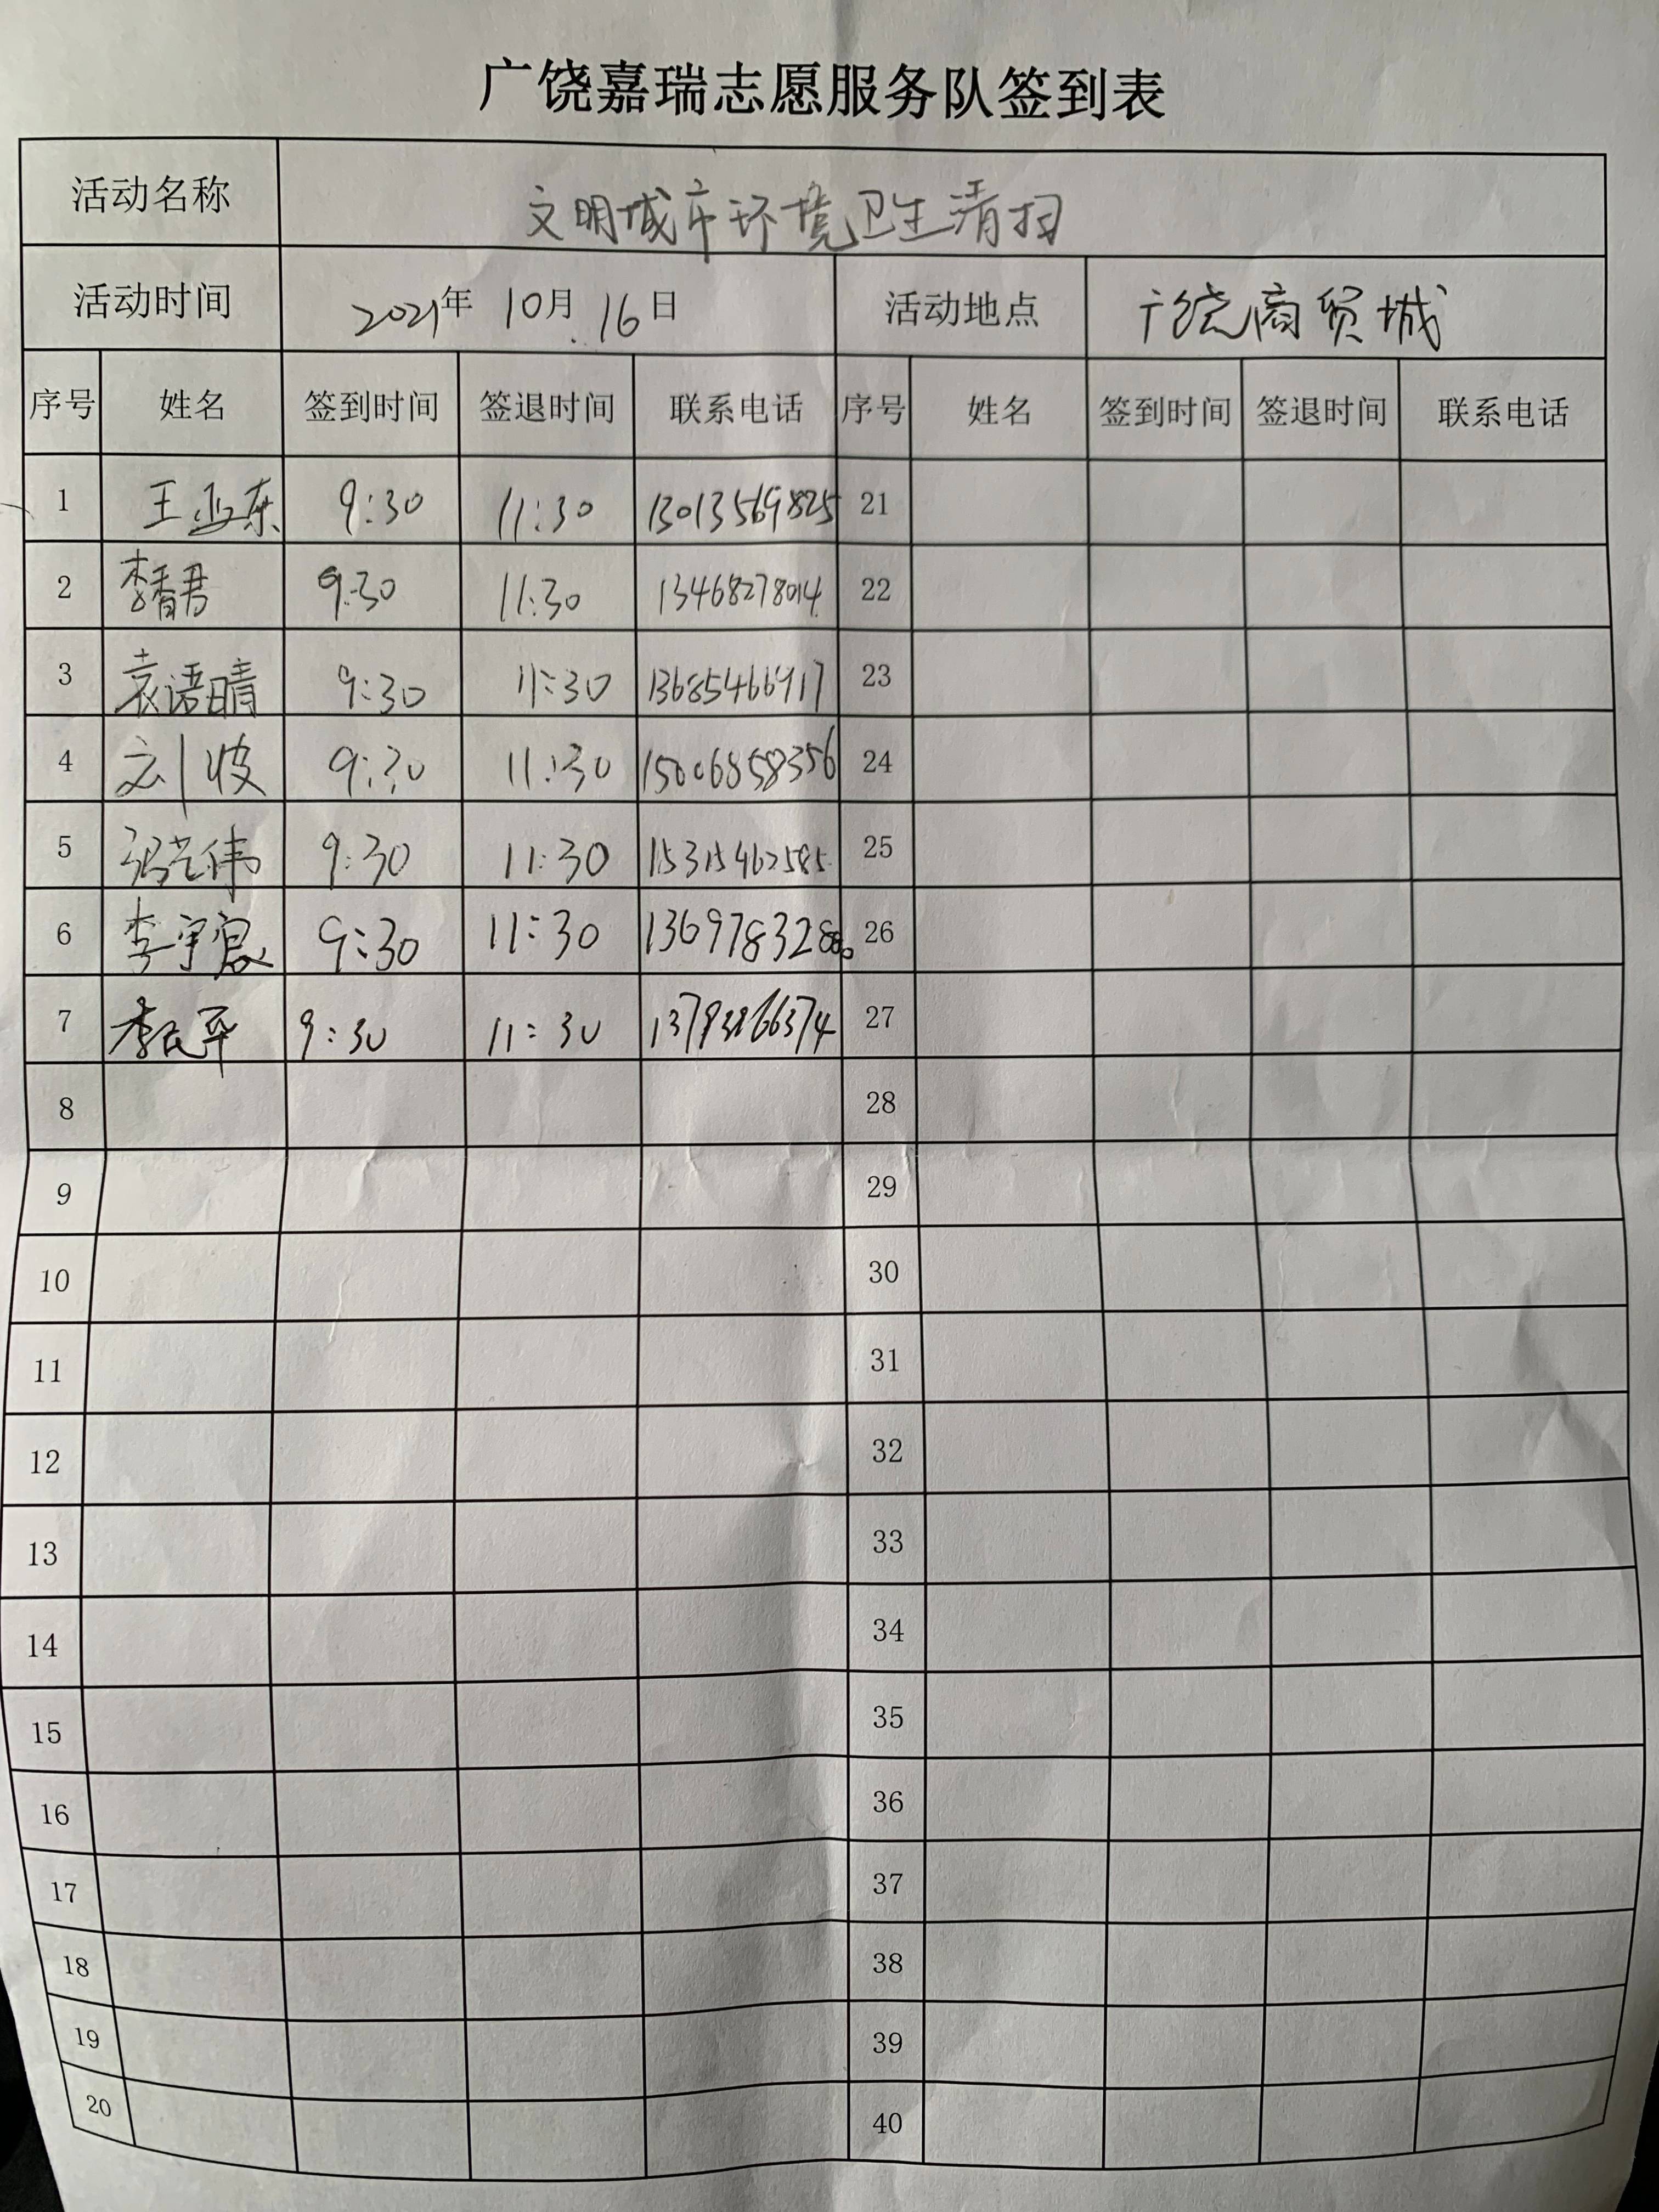 广饶嘉瑞志愿服务队签到表
活动名称 文明城市环境卫生清扫
活动时间 2021年 10月 16日 活动地点 广饶商贸城
序号 姓名 签到时间 签退时间 联系电话 序号 姓名 签到时间 签退时间 联系电话
1 王亚东 9:30 11:30 13013569825 21
2 李香君 9:30 11:30 13468278014 22
3 袁语晴 9:30 11:30 13685466917 23
4 刘波 9:30 11:30 15006858356 24
5 冯艺伟 9:30 11:30 15315462585 25
6 李宇宸 9:30 11:30 26
7 9:30 11:30 27
8 28
9 29
10 30
11 31
12 32
13 33
14 34
15 35
16 36
17 37
18 38
19 39
20 40